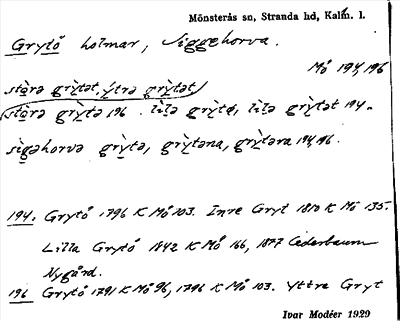 Mönsterås sn, Stranda hd, Kalm. l.
Grytö holmar, Siggehorva.
Mö 194, 196
störə grỳtət, ýtrə grỳtət
störə grỳtə 196. lìlə grỳtə, lìlə grỳtət 194.
sìgəhorvə grỳtə, grỳtəna, grỳtəra 194, 196.
194. Grytö 1796 K Mö 103. Inre Gryt 1810 K Mö 135.
Lilla Grytö 1842 K Mö 166, 1877 Cederbaum
Nygård.
196 Grytö 1791 K Mö 96, 1796 K Mö 103. Yttre Gryt
Ivar Modéer 1929